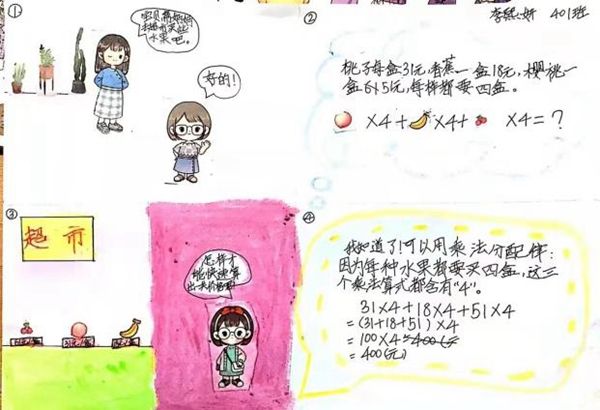 ①
宝贝,帮妈妈
去超市买些
水果吧。
好的!
②
李熙妍 401班
桃子每盒31元,香蕉一盒18元,樱桃一
盒51元,每样都要四盒。
×4+ ×4+ ×4=?
③
超市
怎样才
能快速算
出
④
我知道了!可以用乘法分配律:
因为每种水果都要买四盒,这三
个乘法算式都含有“4”。
31×4+18×4+51×4
=(31+18+51)×4
=100×4
=400(元)